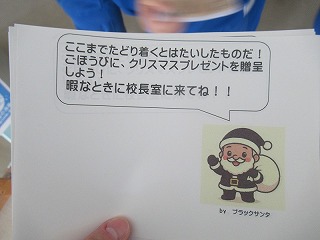 ここまでたどり着くとはたいしたものだ！
ごほうびに、クリスマスプレゼントを贈呈
しよう！
暇なときに校長室に来てね！！
by ブラックサンタ